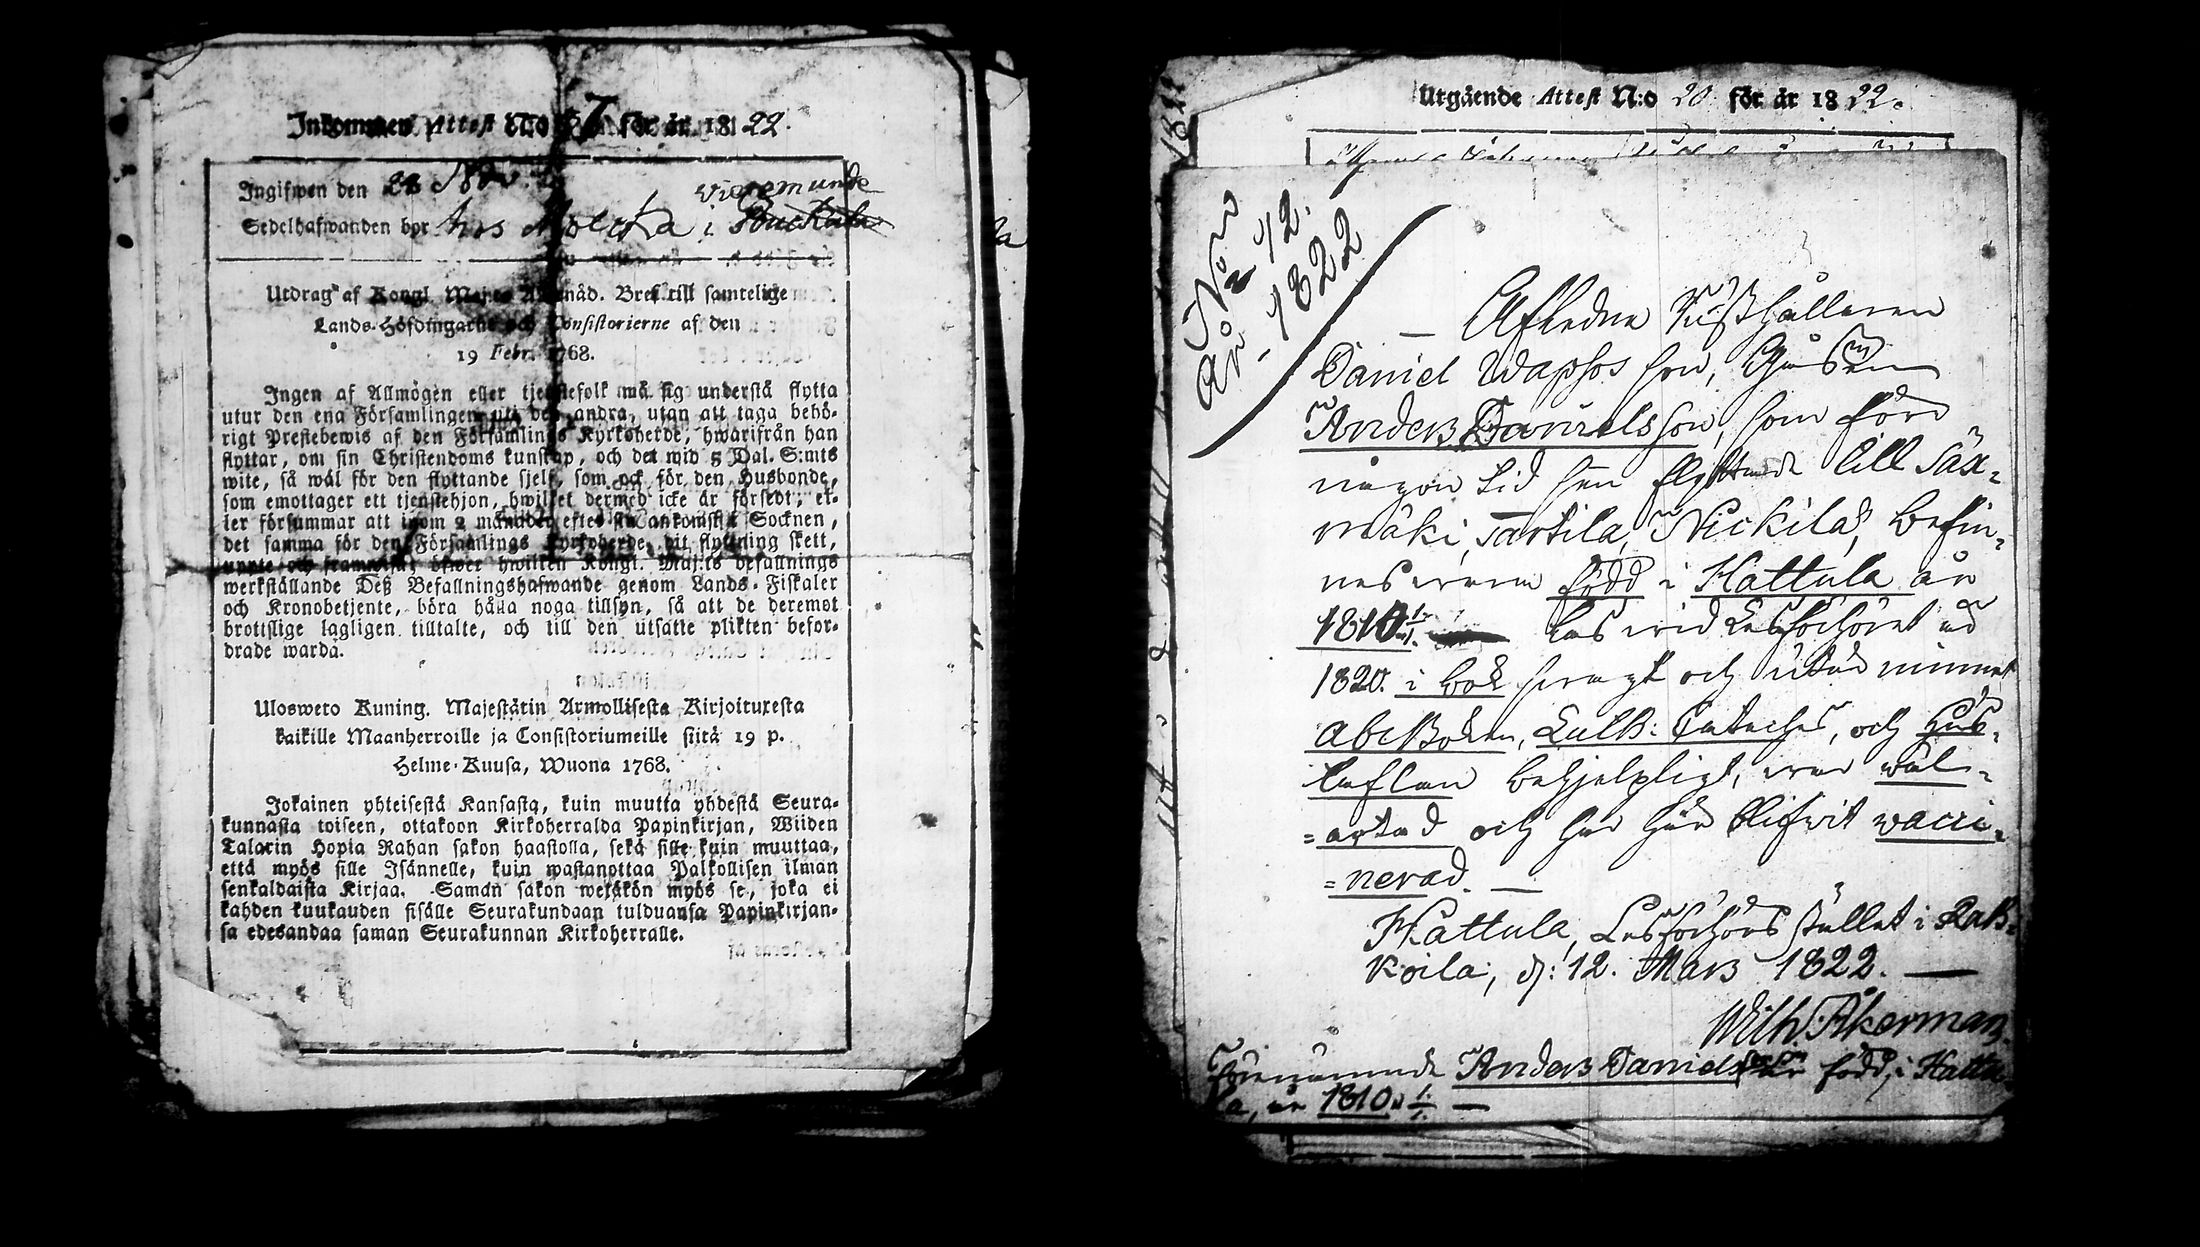 Inkommen Attest N:o 7 för år 1822.
Ingifwen den 28 Nov.
Wieremunde
Sedelhafwanden bor hos i
Utdrag af Kongl. Maj:ts Nåd. Bref till samtelige
Lands-Höfdingarne och Consistorierne af den
19 Febr. 1768.
Ingen af Allmogen eller tjenstefolk må sig understå flytta
utur den ena Församlingen uti den andra, utan att taga behö-
rigt Prestebewis af den Församlings Kyrkoherde, hwarifrån han
flyttar, om sin Christendoms kunskap, och det wid 5 Dal. S:mts
wite, så wäl för den flyttande sjelf, som ock för den Husbonde,
som emottager ett tjenstehjon, hwilket dermed icke är försedt, el-
ler försummar att inom 2 månader efter sin ankomst i Socknen,
det samma för den Församlings Kyrkoherde, dit flyttning skett,
uppte och framwisa; öfwer hwilken Kongl. Maj:ts befallnings
werkställande Deß Befallningshafwande genom Lands-Fiskaler
och Kronobetjente, böra hålla noga tillsyn, så att de deremot
brottslige lagligen tilltalte, och till den utsatte plikten befor-
drade warda.
Ulosweto Kuning. Majestätin Armollisesta Kirjoituxesta
kaikille Maanherroille ja Consistoriumeille siitä 19 p.
Helme-Kuusa, Wuona 1768.
Jokainen yhteisestä Kansasta, kuin muutta yhdestä Seura-
kunnasta toiseen, ottakoon Kirkoherralda Papinkirjan, Wiiden
Talarin Hopia Rahan sakon haastolla, sekä sille kuin muuttaa,
että myös sille Isännelle, kuin wastanottaa Palkollisen ilman
senkaldaista Kirjaa. Saman sakon wetäkön myös se, joka ei
kahden kuukauden sisälle Seurakundaan tulduansa Papinkirjan-
sa edesandaa saman Seurakunnan Kirkoherralle.
Utgående Attest N:o 20 för år 1822.
No 12.
År 1822
Afledne Rusthållaren
Daniel Waphos son, Gossen
Anders Danielsson, som förr
någon tid sen flyttade till Sax-
mäki, Sattila, Nickilä, befin-
nes wara född i Hattula år
1810 1/1. Las wid Läsförhöret åd
1820. i bok swagt och utur minnet
abcBoken, Luth: Cateches, och Hus-
taflan behjelpligt, war wäl-
=artad och har här blifwit wacci-
=nerad. —
Hattula, Läsförhörs stället i Rah-
koila, d: 12. Mars 1822. —
Wilh. Åkerman.
Förenämnde Anders Danielsson är född, i Hattu-
la, år 1810 1/1. —